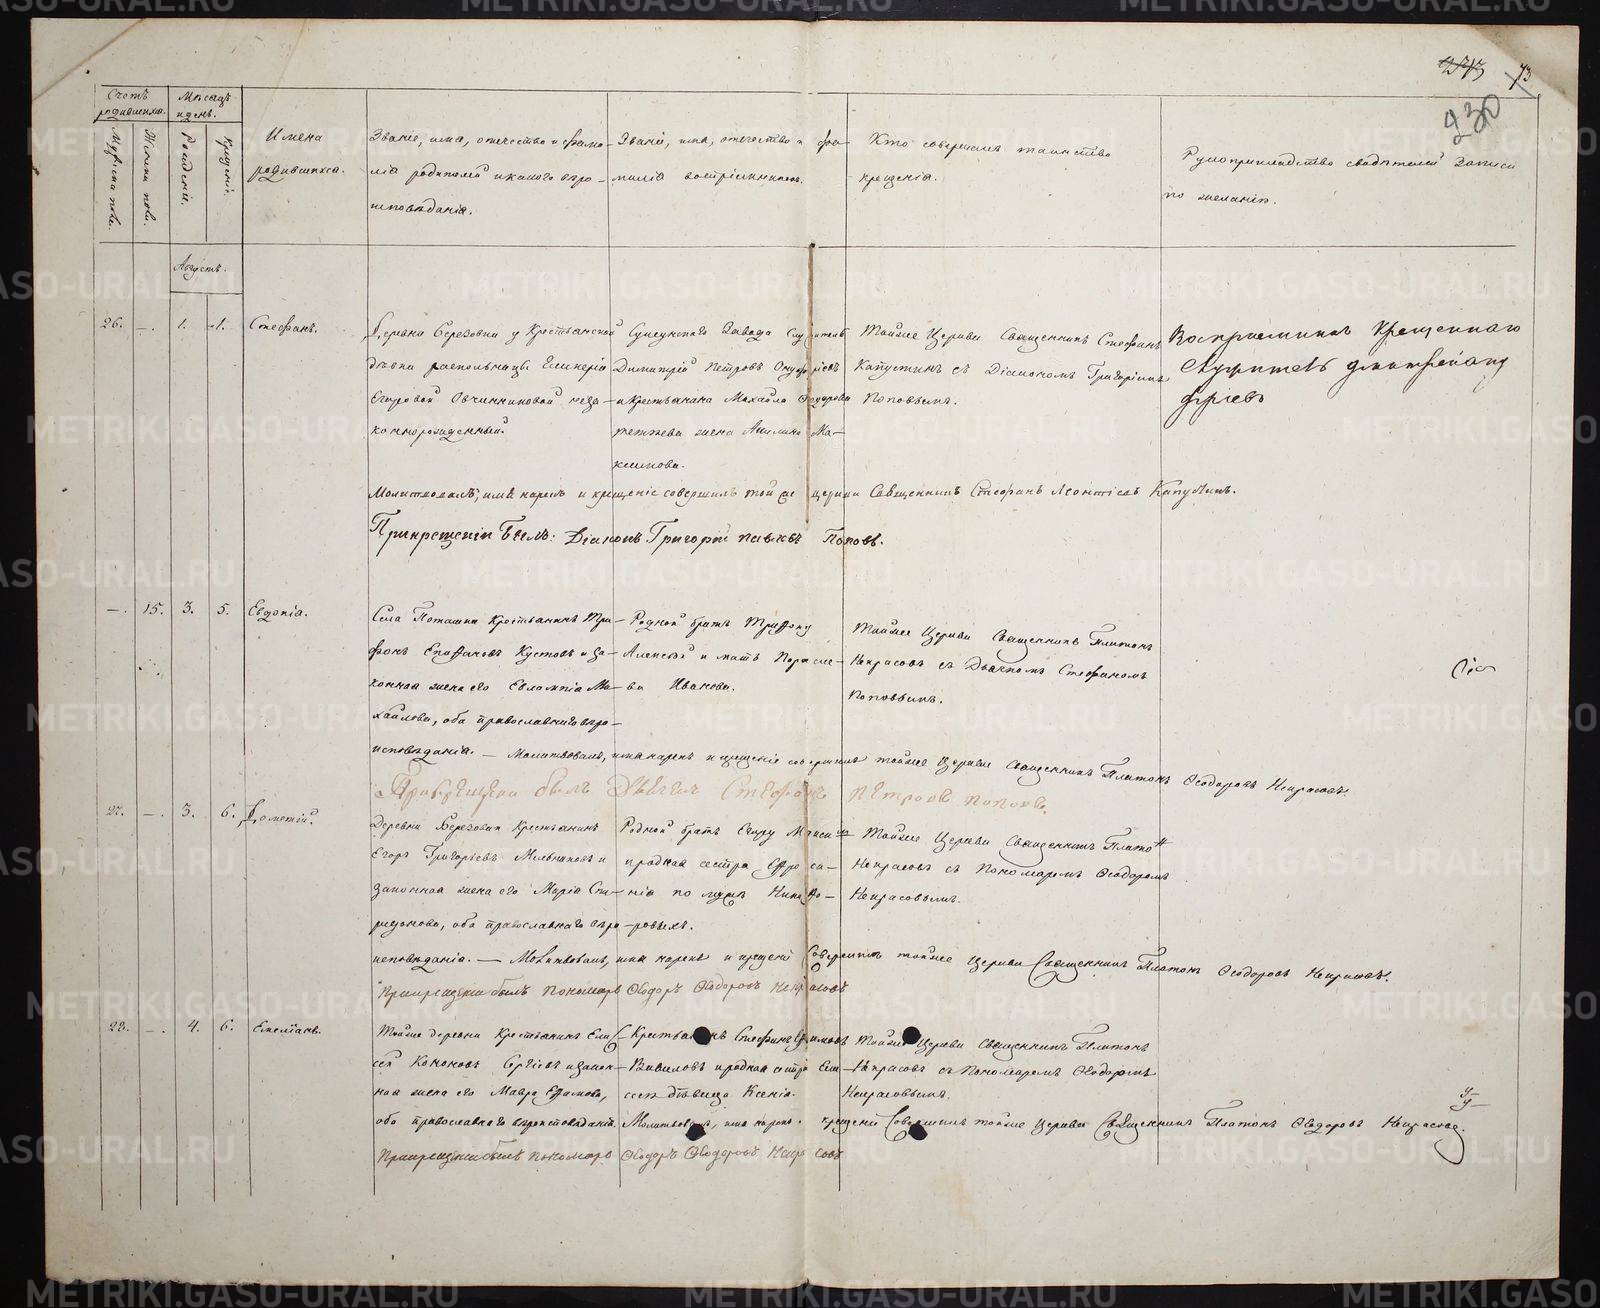 73
230
Счетъ родившихся.
Мѣсяцъ и день.
Мужеска пола.
Женска пола.
Рожденія.
Крещенія.
Имена
родившихся.
Званіе, имя, отечество и фами-
лія родителей и какого вѣро-
исповѣданія.
Званіе, имя, отечество и фа-
милія воспріемниковъ.
Кто совершалъ таинство
крещенія.
Рукоприкладство свидѣтелей записи
по желанію.
Августъ.
26. — 1. 1. Стефанъ.
Деревни Березовки у Крестьянской
дѣвки раскольницы
Егоровой Овчинниковой неза-
коннорожденный.
Суксунскаго Завода Служитель
Димитрій Петровъ
и крестьянина Михайла Федорова
жена Ма-
ксимова.
Тойже Церкви Священникъ Стефанъ
Капустинъ съ Діакономъ Григоріемъ
Поповымъ.
Воспріемникъ Крещеннаго
Молитвовалъ, имя нарекъ и крещеніе совершилъ той же церкви Священникъ Стефанъ Леонтіевъ Капустинъ.
Прикрещеніи Былъ: Діаконъ Григорій Поповъ.
— 15. 3. 5. Евдокія.
Села Поташки Крестьянинъ Три-
фонъ Епифановъ Кустовъ и за-
конная жена его Евлампія Ми-
хайлова, оба православнаго вѣро-
исповѣданія. —
Родной братъ Трифону
Алексѣй и мать Параске-
ва Иванова.
Тойже Церкви Священникъ Платонъ
Некрасовъ съ Дьячкомъ Стефаномъ
Поповымъ.
Молитвовалъ, имя нарекъ и крещеніе совершилъ тойже Церкви Священникъ Платонъ Ѳеодоровъ Некрасовъ.
Прикрещеніи былъ Дьячекъ Стефанъ Петровъ Поповъ.
27. — 3. 6. Дометій.
Деревни Березовки Крестьянинъ
Егоръ Григорьевъ Мельниковъ и
законная жена его Марія Спи-
ридонова, оба православнаго вѣро-
исповѣданія. —
Родной братъ Егору Максимъ
и родная сестра Ефроси-
нія по мужѣ Никифо-
ровыхъ.
Тойже Церкви Священникъ Платонъ
Некрасовъ съ Пономаремъ Ѳеодоромъ
Некрасовымъ.
Молитвовалъ, имя нарекъ и крещеніе Совершилъ тойже Церкви Священникъ Платонъ Ѳеодоровъ Некрасовъ.
Прикрещеніи былъ пономарь Ѳеодоръ Ѳеодоровъ Некрасовъ
28. — 4. 6. Емеліанъ.
Тойже деревни Крестьянинъ Ели-
сей Кононовъ Сергіевъ и закон-
ная жена его Мавра Ефимова,
оба православнаго вѣроисповѣданія.
Крестьянинъ Стефанъ Ефимовъ
Вавиловъ и родная сестра Ели-
сея дѣвица Ксенія.
Тойже Церкви Священникъ Платонъ
Некрасовъ съ Пономаремъ Ѳеодоромъ
Некрасовымъ.
Молитвовалъ, имя нарекъ, крещеніе Совершилъ тойже Церкви Священникъ Платонъ Ѳеодоровъ Некрасовъ.
Прикрещеніи былъ пономарь Ѳеодоръ Ѳеодоровъ Некрасовъ
METRIKI.GASO-URAL.RU